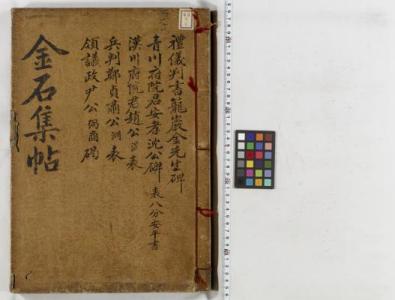 禮儀判書龍巖金先生碑
青川府院君安孝沈公碑 表八分安平書
漢川府院君趙公溫表
兵判鄭貞肅公淵表
領議政尹公弼商碣
金石集帖